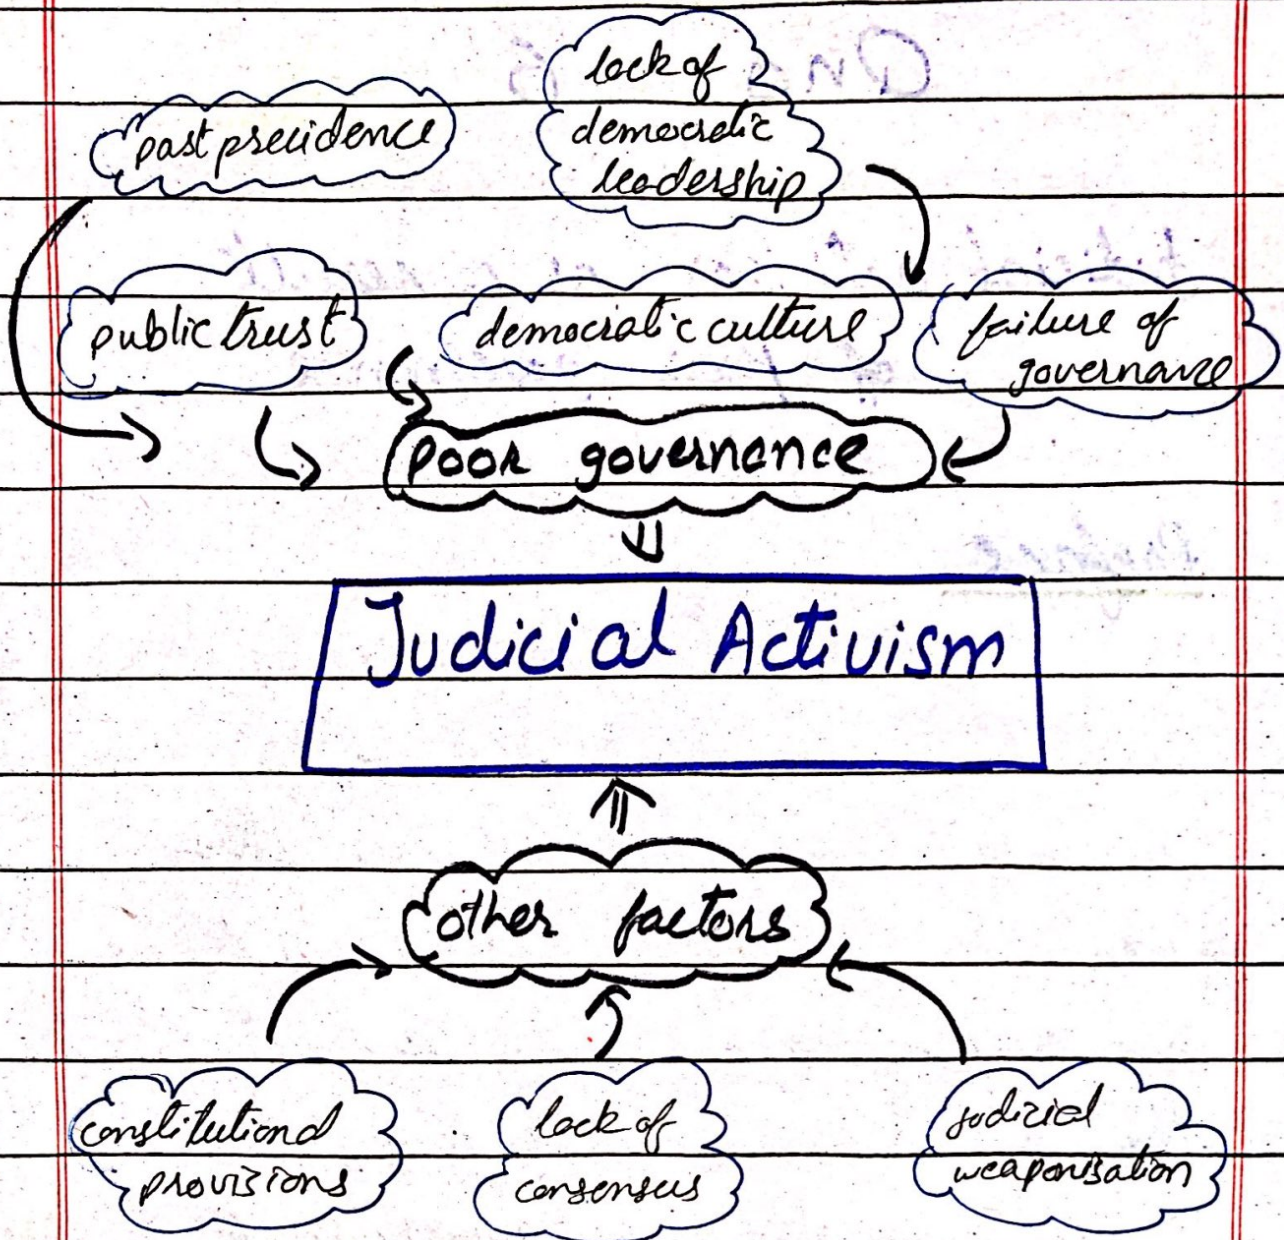 past precidence
lack of
democratic
leadership
public trust
democratic culture
failure of
governance
poor governance
Judicial Activism
other factors
constitutional
provisions
lack of
consensus
judicial
weaponisation